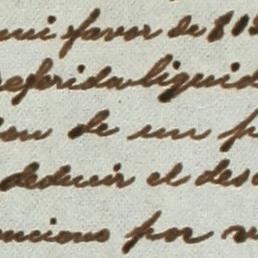 mi favor de 81
referida liquid
de un p
deducir el des
enciono por v